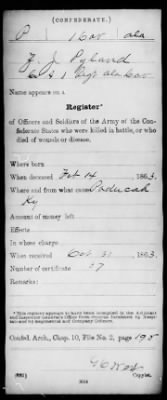 (CONFEDERATE.)
P 1 Cav Ala
F. J. Pyland
Co I 1 Regt Ala Cav
Name appears on a
Register*
of Officers and Soldiers of the Army of the Con-
federate States who were killed in battle, or who
died of wounds or disease.
Where born
When deceased Feb 14 1863.
Where and from what cause Paducah
Ky
Amount of money left
Effects
In whose charge
When received Oct 31 1863.
Number of certificate 37
Remarks:
*This register appears to have been compiled in the Adjutant
and Inspector General's Office from reports furnished by Hospi-
tals and by Regimental and Company Officers.
Confed. Arch., Chap. 10, File No. 2, page 195
Copyist.